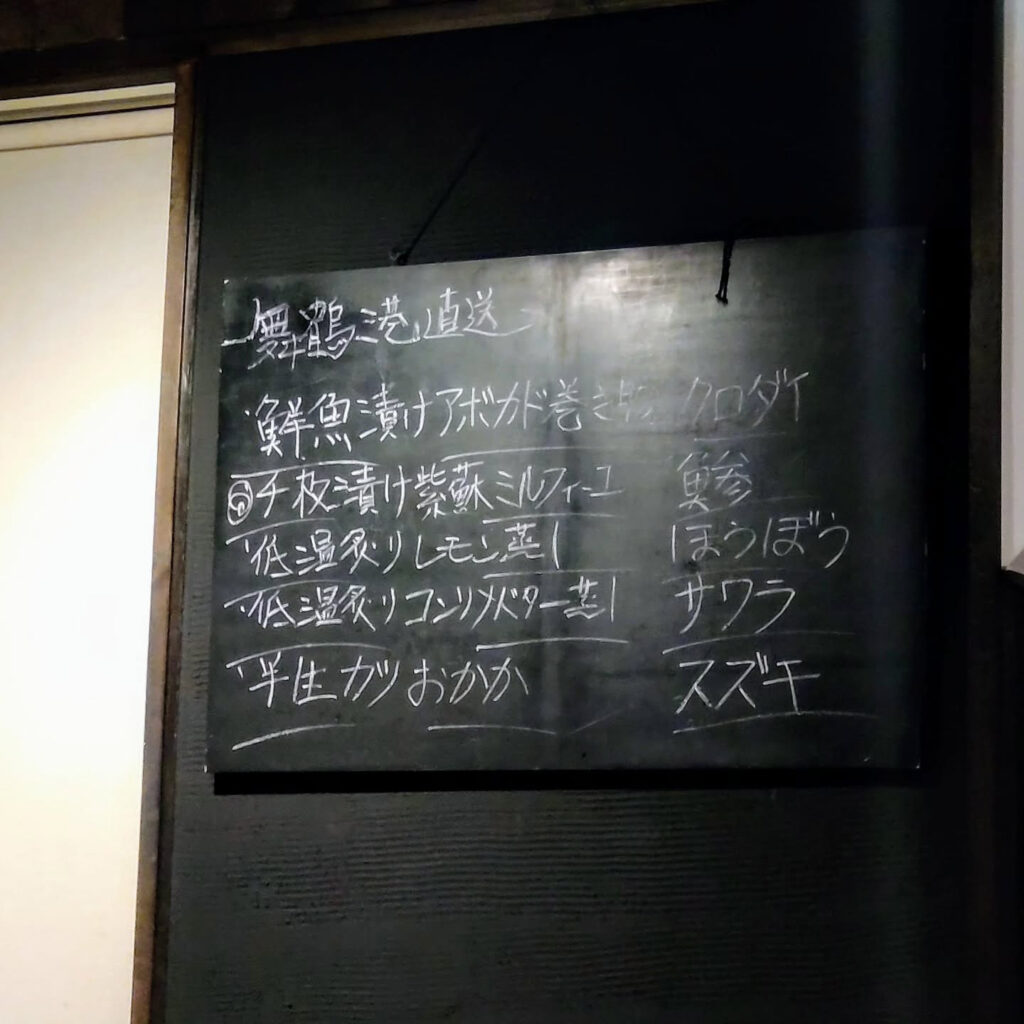 舞鶴港直送
鮮魚漬けアボカド巻き クロダイ
千枚漬け紫蘇ミルフィーユ 鰺
低温炙りレモン蒸し ほうぼう
低温炙りコンソメバター蒸し サワラ
半生ガツおかか スズキ